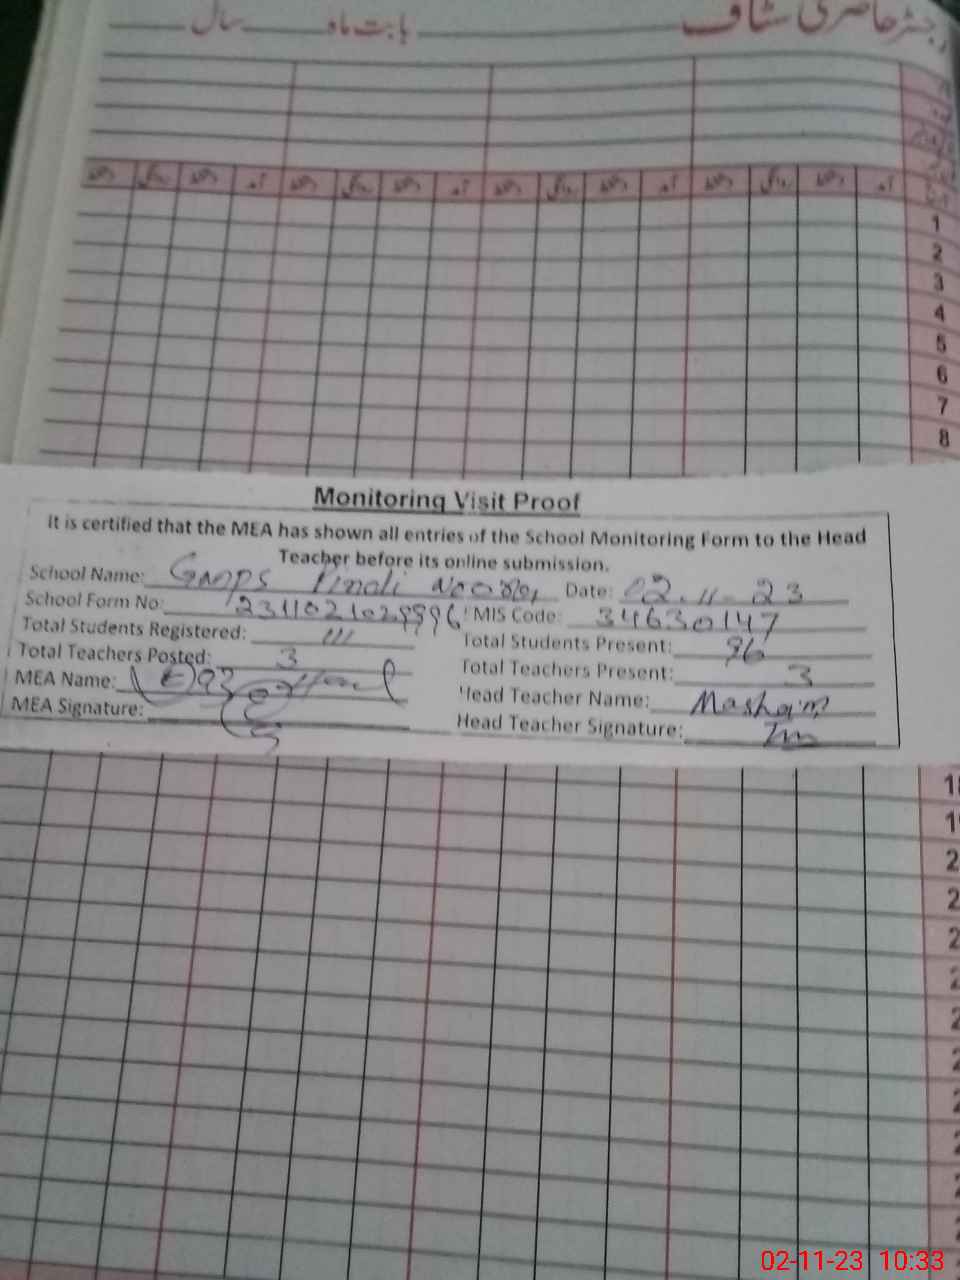 رجسٹر حاضری سٹاف بابت ماہ سال
آمد دستخط روانگی دستخط آمد دستخط روانگی دستخط آمد دستخط روانگی دستخط آمد دستخط روانگی دستخط
1
2
3
4
5
6
7
8
Monitoring Visit Proof
It is certified that the MEA has shown all entries of the School Monitoring Form to the Head
Teacher before its online submission.
School Name: Pindi Date: 02-11-23
School Form No: MIS Code: 34630147
Total Students Registered: 111 Total Students Present: 96
Total Teachers Posted: 3 Total Teachers Present: 3
MEA Name: Head Teacher Name:
MEA Signature: Head Teacher Signature:
02-11-23 10:33